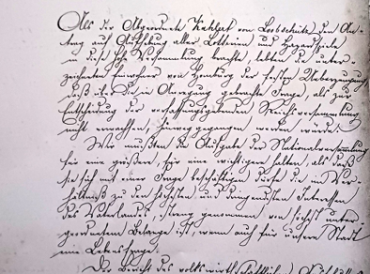 Als die Abgeordnete Kuhlzet von Leobschütz den An-
trag auf Aufhebung aller Lotterien und Hazardspiele
in diese hohe Versammlung brachte, lebten die unter-
zeichneten Einwohner von Homburg der festen Ueberzeugung
daß die in Anregung gebrachte Frage, als zur
Entscheidung der verfassunggebenden Reichsversammlung
nicht erwachsen, hinweggegangen werden würde.
Wir mußten die Aufgabe der Nationalversammlung
für eine größere, für eine wichtigere halten, als daß
sie sich mit einer Frage beschäftigen dürfe die im Ver-
hältniß zu den höchsten und dringendsten Interessen
des Vaterlandes, streng genommen von höchst unter-
geordnetem Belange ist, wenn auch für unsere Stadt
eine Lebensfrage.
Der Bericht des volkswirthschaftlichen